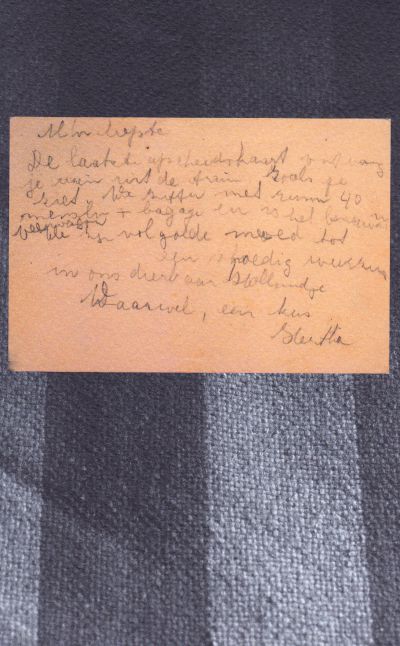 Mijn liefste
De laatste afscheidskaart ontvang
je weer uit de trein zoals je
ziet. We zitten met ruim 40
mensen + bagage en is het benauwd
We zijn vol goede moed tot
een spoedig weerzien
in ons dierbaar Hollandje
Vaarwel, een kus